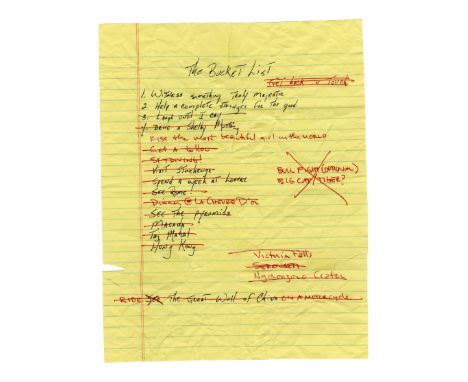 The Bucket List
1. Witness something truly majestic
2. Help a complete stranger for the good
3. Laugh until I cry
4. Drive a Shelby Mustang
Kiss the most beautiful girl in the world
Get a tattoo
SKYDIVING!
Visit Stonehenge
Spend a week at Louvre
See Rome!
Dinner @ La Chevre D'or
See The Pyramids
Masada!
Taj Mahal
Hong Kong
BULL FIGHT
BIG CAT/TIGER?
Victoria Falls
SERENGETI
Ngorongoro Crater
RIDE The Great Wall of China ON A MOTORCYCLE